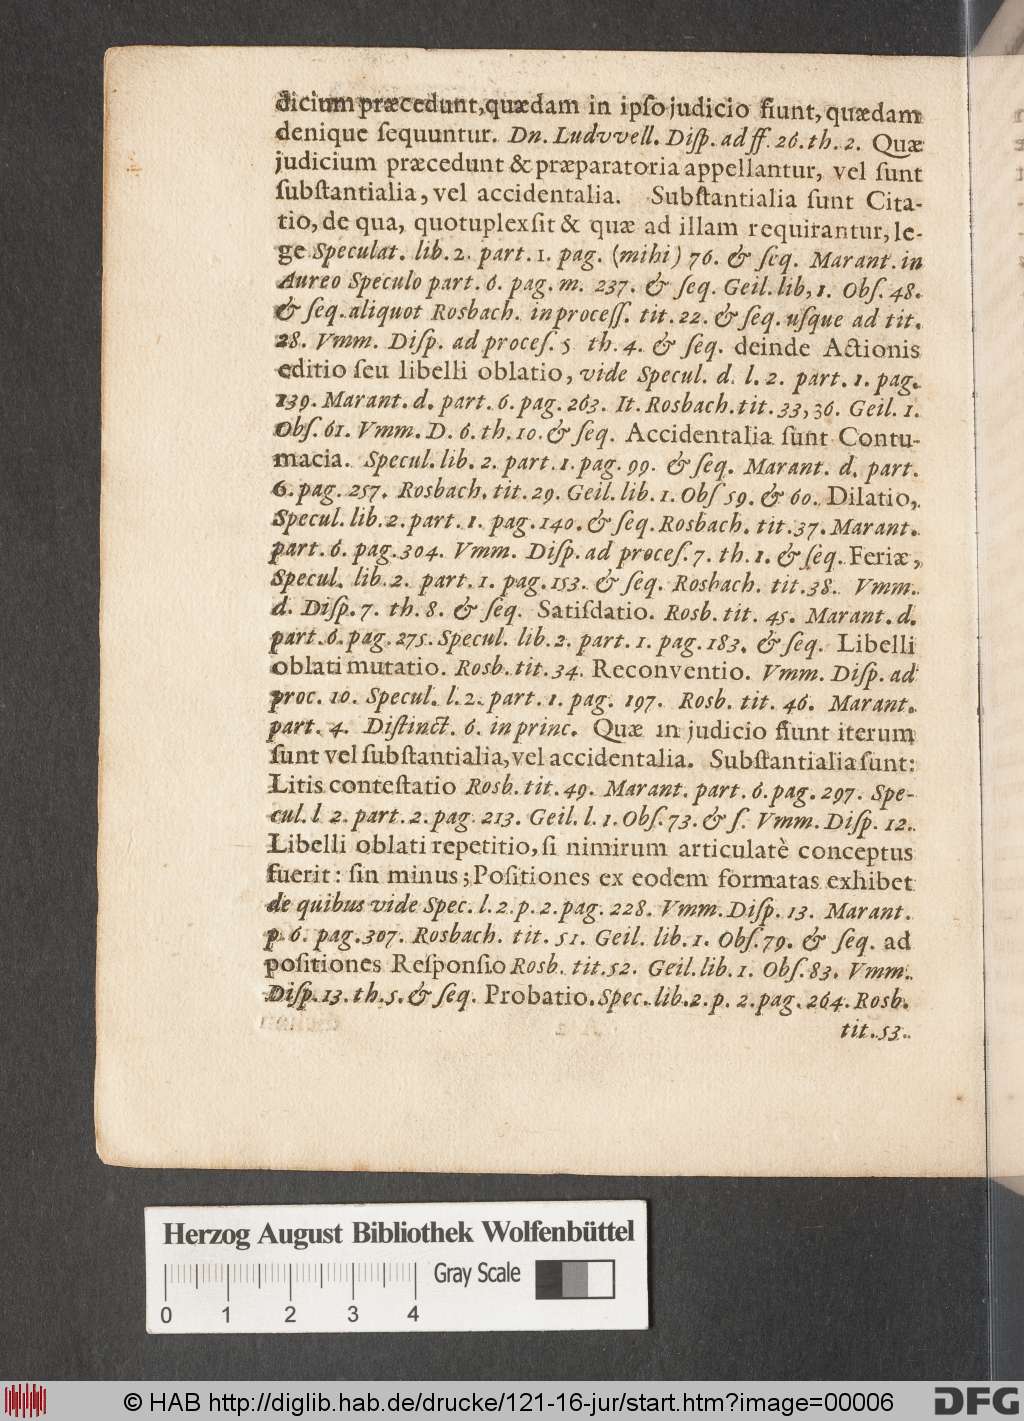 dicium præcedunt,quædam in ipſo judicio fiunt, quædam
denique ſequuntur. Dn. Ludvvell. Diſp. ad ff. 26. th. 2. Quæ
judicium præcedunt & præparatoria appellantur, vel ſunt
ſubſtantialia, vel accidentalia. Subſtantialia ſunt Cita-
tio, de qua, quotuplex ſit & quæ ad illam requirantur, le-
ge Speculat. lib. 2. part. 1. pag. (mihi) 76. & ſeq. Marant. in
Aureo Speculo part. 6. pag. m. 237. & ſeq. Geil. lib, 1. Obſ. 48.
& ſeq. aliquot Rosbach. in proceſſ. tit. 22. & ſeq. uſque ad tit.
28. Vmm. Diſp. ad proceſ. 5 th. 4. & ſeq. deinde Actionis
editio ſeu libelli oblatio, vide Specul. d. l. 2. part. 1. pag.
139. Marant. d. part. 6. pag. 263. It. Rosbach. tit. 33, 36. Geil. 1.
Obſ. 61. Vmm. D. 6. th. 10. & ſeq. Accidentalia ſunt Contu-
macia. Specul. lib. 2. part. 1. pag. 99. & ſeq. Marant. d. part.
6. pag. 257. Rosbach. tit. 29. Geil. lib. 1. Obſ 59. & 60. Dilatio,
Specul. lib. 2. part. 1. pag. 140. & ſeq. Rosbach. tit. 37. Marant.
part. 6. pag. 304. Vmm. Diſp. ad proceſ. 7. th. 1. & ſeq. Feriæ,
Specul. lib. 2. part. 1. pag. 153. & ſeq. Rosbach. tit. 38. Vmm.
d. Diſp. 7. th. 8. & ſeq. Satiſdatio. Rosb. tit. 45. Marant. d.
part. 6. pag. 275. Specul. lib. 2. part. 1. pag. 183. & ſeq. Libelli
oblati mutatio. Rosb. tit. 34. Reconventio. Vmm. Diſp. ad
proc. 10. Specul. l. 2. part. 1. pag. 197. Rosb. tit. 46. Marant.
part. 4. Diſtinct. 6. in princ. Quæ in judicio fiunt iterum
ſunt vel ſubſtantialia, vel accidentalia. Subſtantialia ſunt:
Litis conteſtatio Rosb. tit. 49. Marant. part. 6. pag. 297. Spe-
cul. l 2. part. 2. pag. 213. Geil. l. 1. Obſ. 73. & ſ. Vmm. Diſp. 12.
Libelli oblati repetitio, ſi nimirum articulatè conceptus
fuerit: ſin minus; Poſitiones ex eodem formatas exhibet
de quibus vide Spec. l. 2. p. 2. pag. 228. Vmm. Diſp. 13. Marant.
p. 6. pag. 307. Rosbach. tit. 51. Geil. lib. 1. Obſ. 79. & ſeq. ad
poſitiones Reſponſio Rosb. tit. 52. Geil. lib. 1. Obſ. 83. Vmm.
Diſp. 13. th. 5. & ſeq. Probatio. Spec. lib. 2. p. 2. pag. 264. Rosb.
tit. 53.
Herzog August Bibliothek Wolfenbüttel
Gray Scale
0 1 2 3 4
© HAB http://diglib.hab.de/drucke/121-16-jur/start.htm?image=00006
DFG